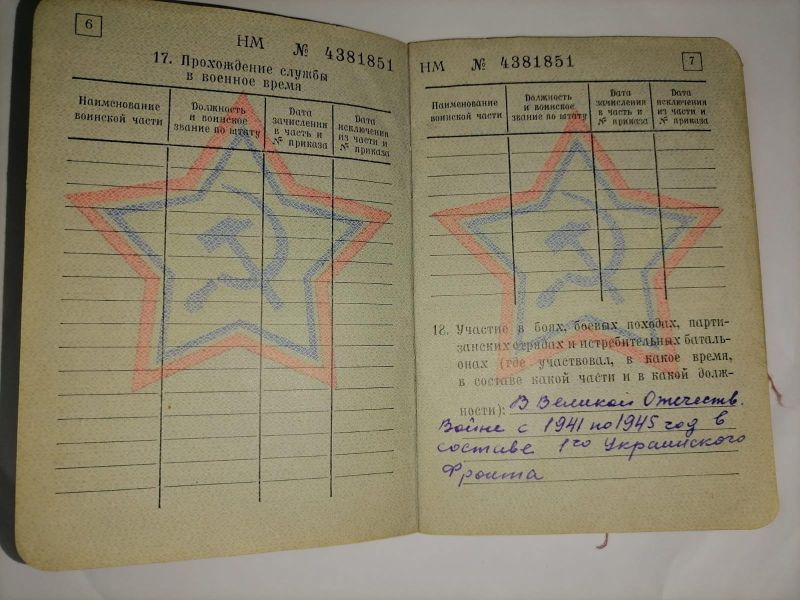 6
НМ № 4381851
17. Прохождение службы
в военное время
Наименование
воинской части
Должность
и воинское
звание по штату
Дата
зачисления
в часть и
№ приказа
Дата
исключения
из части и
№ приказа
НМ № 4381851
7
Наименование
воинской части
Должность
и воинское
звание по штату
Дата
зачисления
в часть и
№ приказа
Дата
исключения
из части и
№ приказа
18. Участие в боях, боевых походах, парти-
занских отрядах и истребительных баталь-
онах (где участвовал, в какое время,
в составе какой части и в какой долж-
ности): В Великой Отечеств.
Войне с 1941 по 1945 год в
составе 1го Украинского
Фронта